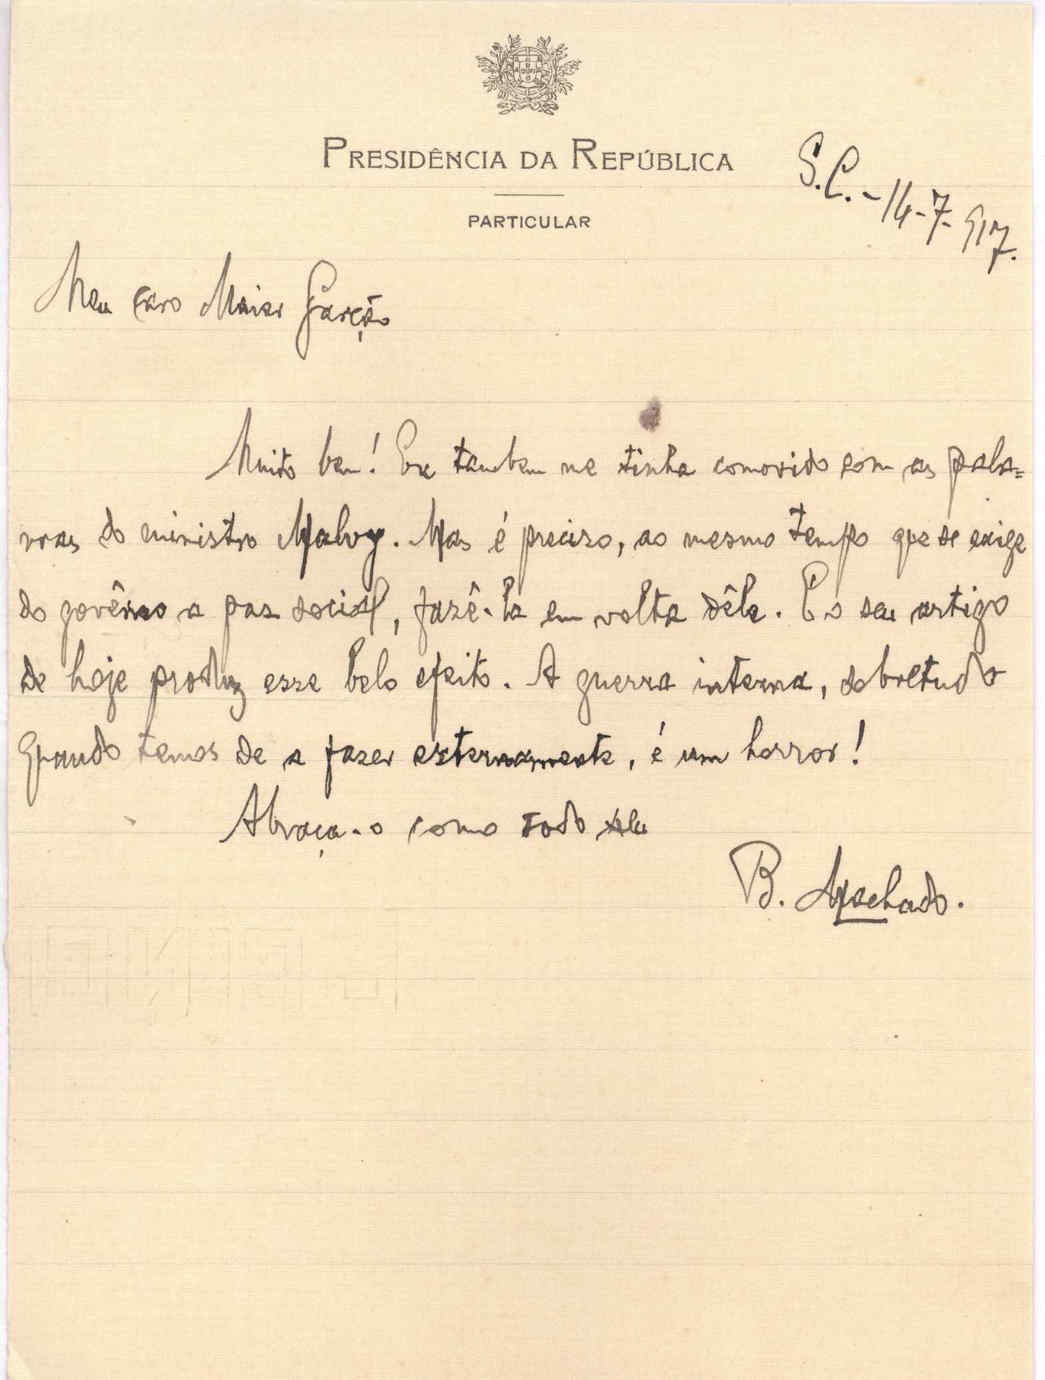 PRESIDÊNCIA DA REPÚBLICA
PARTICULAR
S.C. - 14-7-917.
Meu caro Maier Garção
Muito bem! Eu tambem me tinha comovido com as pala=
vras do ministro Malvy. Mas é preciso, ao mesmo tempo que se exige
do govêrno a paz social, fazê-la em volta dêle. E o seu artigo
de hoje produz esse belo efeito. A guerra interna, sobretudo
quando temos de a fazer externamente, é um horror!
Abraça-o como todo seu
B. Machado.